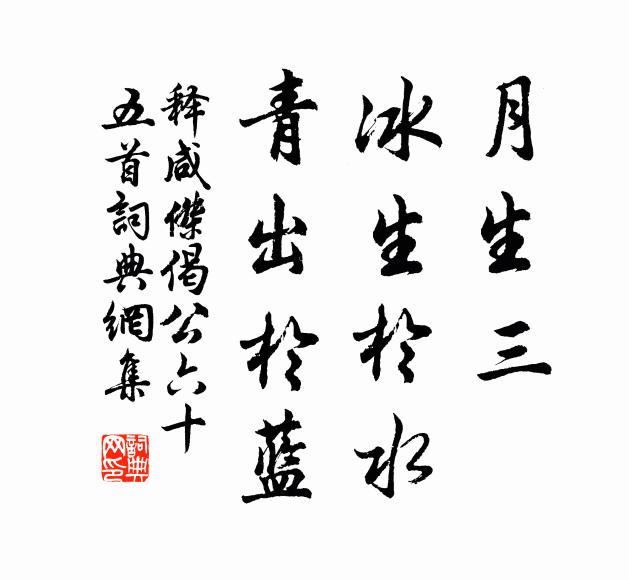 月生三
冰生於水
青出於藍
释咸傑偈公六十
五首詞典網集
詞典
网印